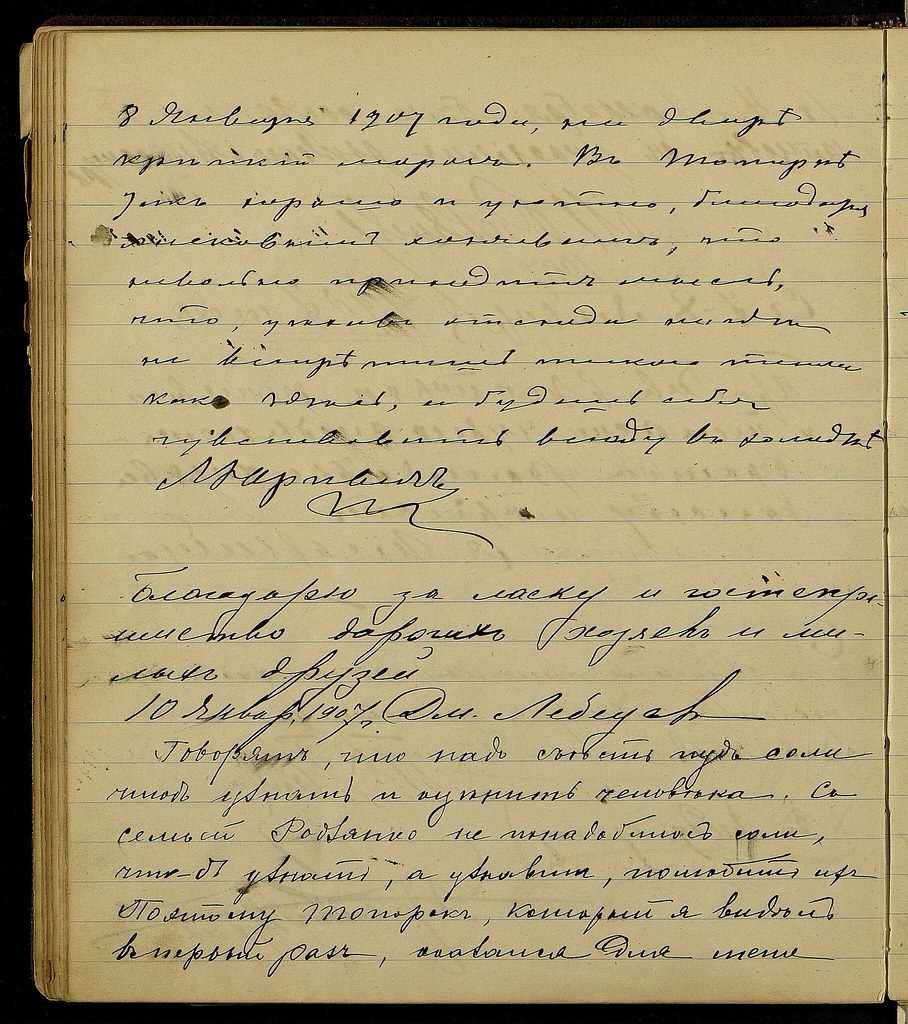 8 Января 1907 года, на дворѣ
крѣпкій морозъ. Въ Топоркѣ
такъ хорошо и уютно, благодаря
хозяевамъ, что
невольно приходитъ мысль,
что, уѣхавъ отсюда нигдѣ
не встрѣтишь такого тепла
какъ здѣсь, и будешь себя
чувствовать всюду въ холодкѣ
Благодарю за ласку и гостепрі-
имство дорогихъ хозяевъ и ми-
лыхъ друзей
10 Январ. 1907 г. Дм. Лебедев
Говорятъ, что надо съѣсть пудъ соли
чтобъ узнать и оцѣнить человѣка. Съ
семьей Родзянко не понадобилось соли,
что-бъ узнать, а узнавши, полюбить ихъ
Поэтому Топорокъ, который я видѣлъ
въ первый разъ, оказался для меня